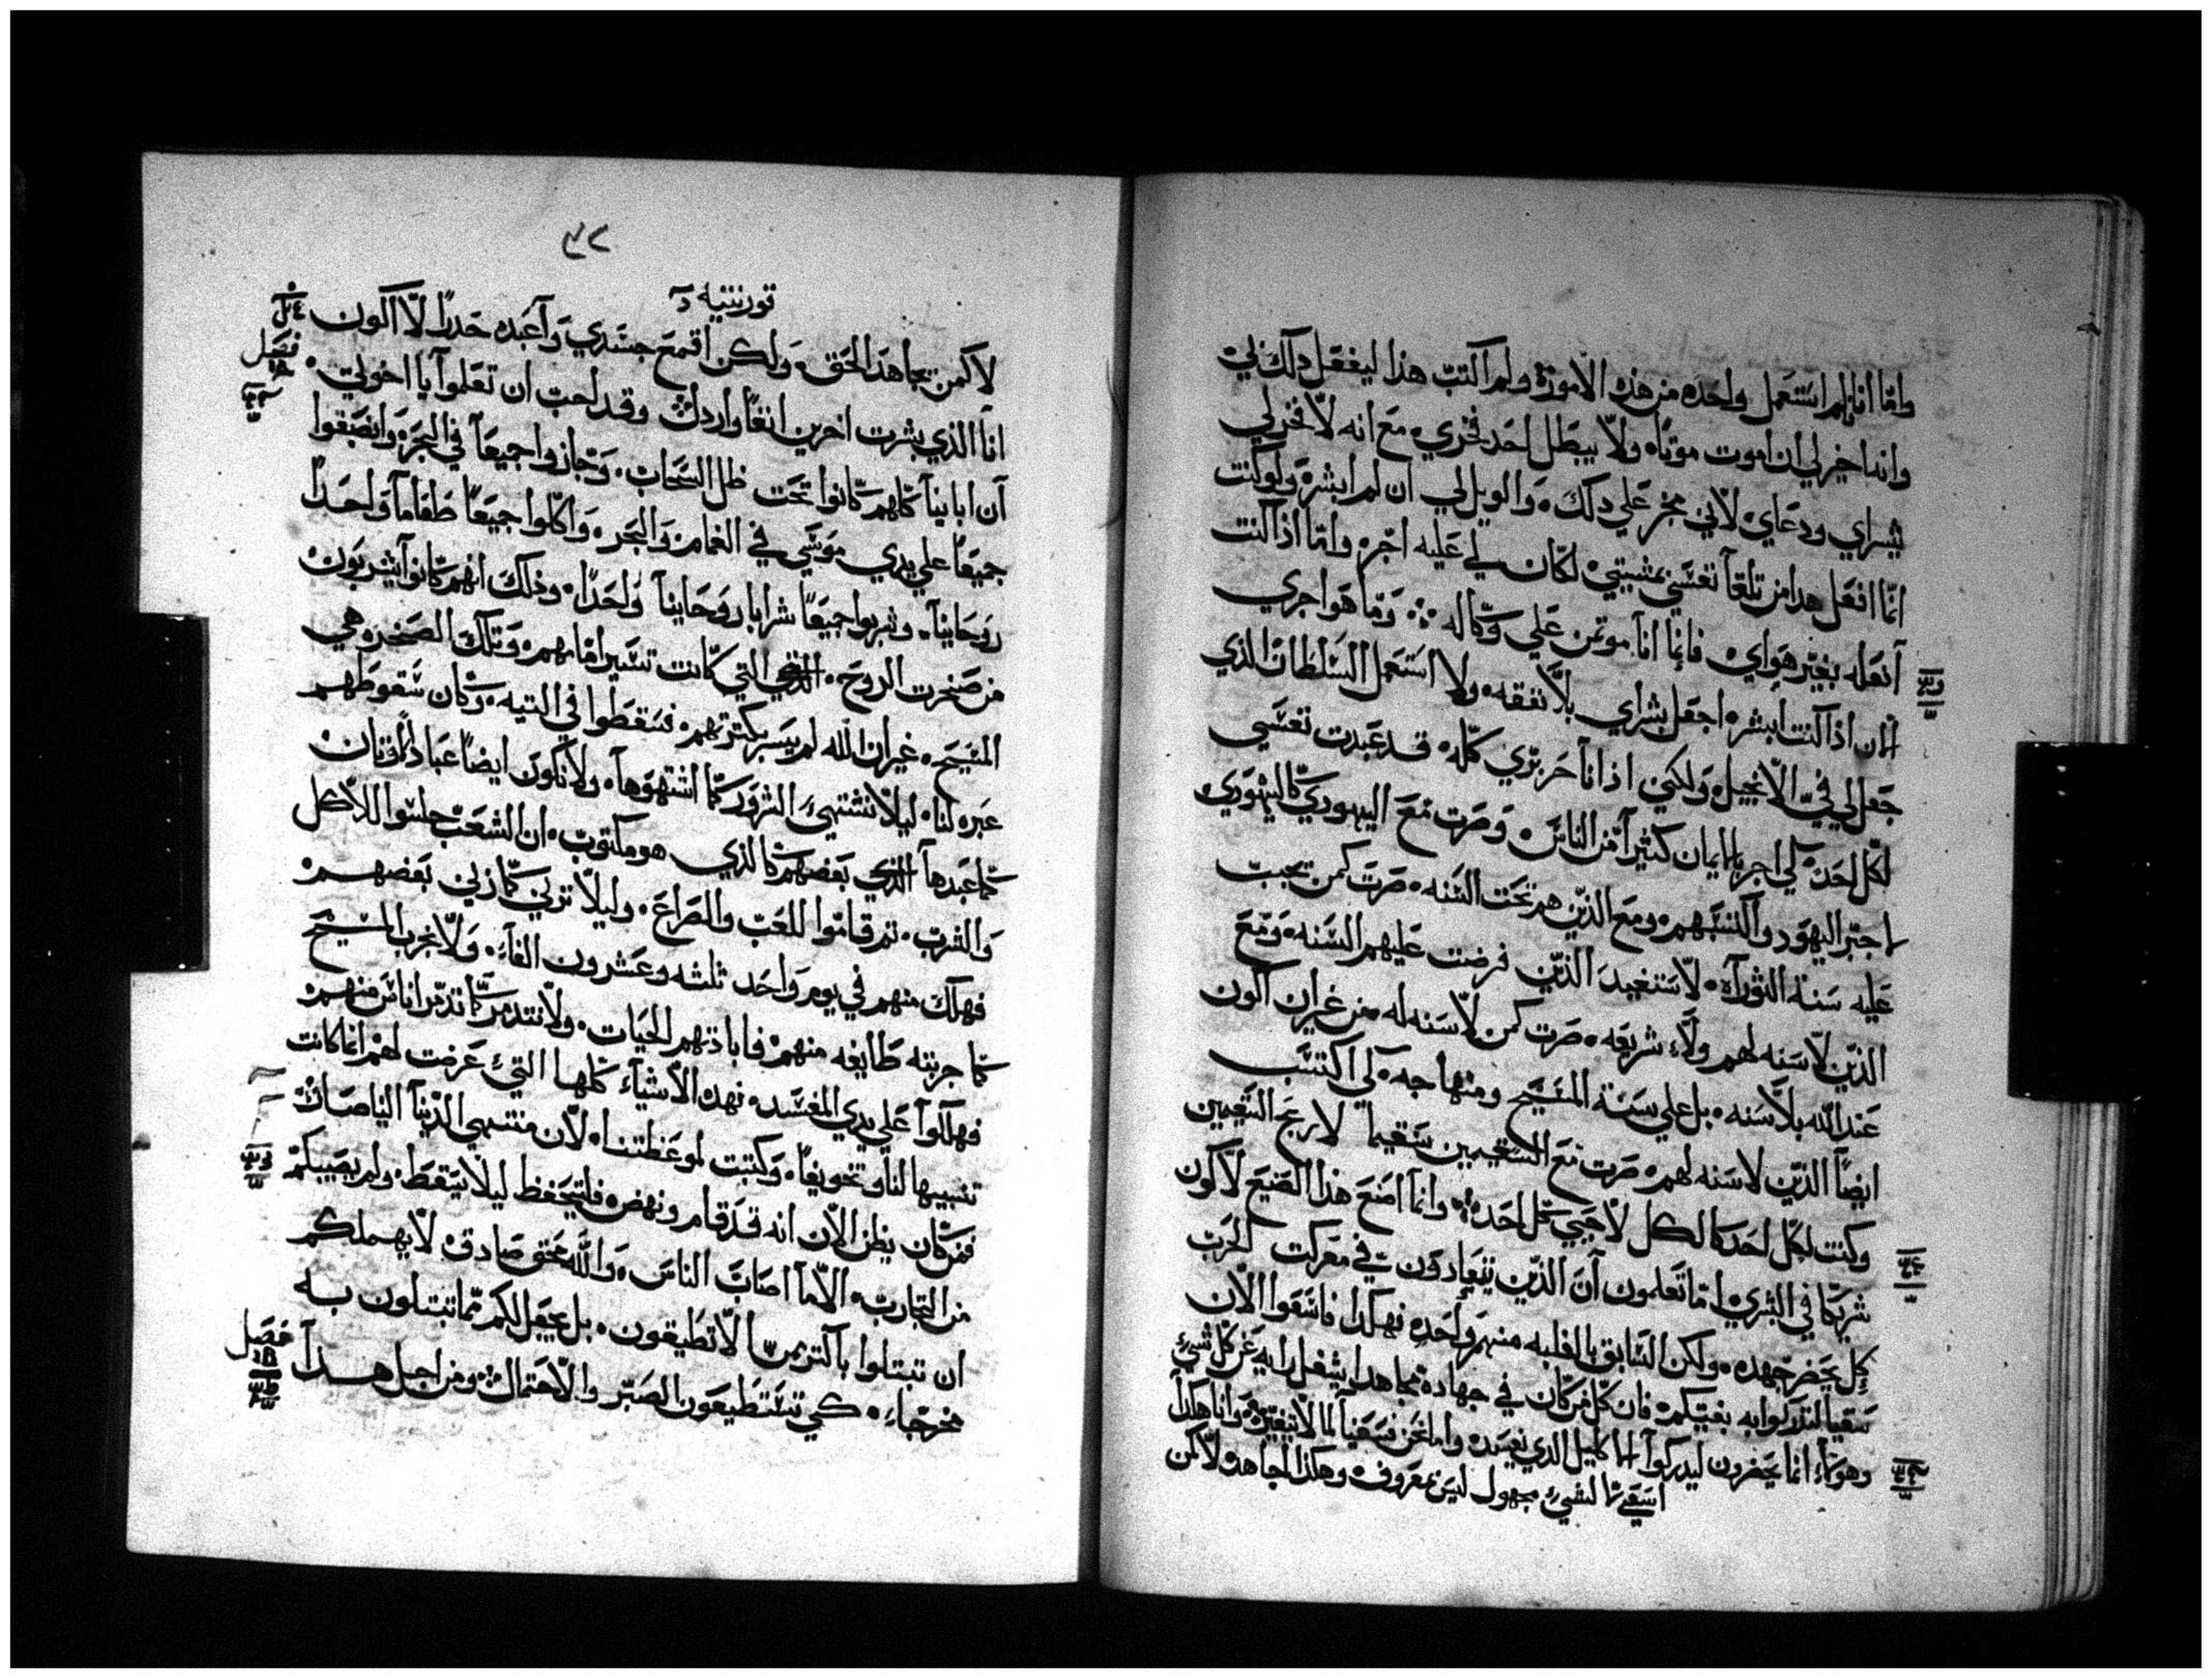 واما انا فلم استعمل واحده من هذه الامور ولم اكتب هذا ليفعل ذلك بي
وانه اخير لي ان اموت موتا ولا يبطل احد فخري مع انه لا فخر لي
بشراي ودعاي لاني مجبر علي ذلك والويل لي ان لم ابشر ولو كنت
انما افعل هذا من تلقا نفسي بمشيتي لكان لي عليه اجر واما اذا كنت
افعله بغير هواي فانما انا موتمن علي وكاله وما هو اجري
الان اذا كنت ابشر اجعل بشراي بلا نفقه ولا استعمل السلطان الذي
جعل لي في الانجيل ولكني اذ انا حر بري كله قد عبدت نفسي
لكل احد كي اجر بالايمان كثيرا من الناس وصرت مع اليهودي كاليهودي
لاجتر اليهود واكتسبهم ومع الذين هم تحت السنه صرت كمن تجب
عليه سنة التوراه لاستفيد الذين فرضت عليهم السنه ومع
الذين لا سنه لهم ولا شريعه صرت كمن لا سنه له من غير ان اكون
عند الله بلا سنه بل علي سنة المسيح ومنهاجه كي اكتسب
ايضا الذين لا سنه لهم صرت مع السقيمين سقيما لاربح السقيمين
وكنت لكل احد كالكل لاحيي كل احد وانما اصنع هذا الصنيع لاكون
شريكا في البشري اما تعلمون ان الذين يتعادون في معركت الحرب
كل يحضر جهده ولكن السابق بالغلبه منهم واحد فهكذا فاسعوا الان
سعيا لتدركوا به بغيتكم فان كل من كان في جهاده مجاهدا يشغل رايه عن كل شي
وهولاء انما يحضرون ليدركوا اكليل الذي يفسد واما نحن فسعينا لما لا يتغير وانا هكذا
اسعي لا لشي مجهول ليس بمعروف وهكذا اجاهد لا كمن
٤٢
قورنتيه
لا كمن يجاهد الخلق ولكن اقمع جسدي واعبده حذرا لا اكون
انا الذي بشرت اخرين انفا وارذل وقد احب ان تعلموا يا اخوتي
فصل
ان اباينا كلهم كانوا تحت ظل السحاب وجازوا جميعا في البحر وانصبغوا
جميعا علي يدي موسي في الغمام والبحر واكلوا جميعا طعاما واحدا
روحانيا وشربوا جميعا شرابا روحانيا واحدا وذلك انهم كانوا يشربون
من صخرت الروح التي كانت تسير امامهم وتلك الصخره هي
المسيح غير ان الله لم يسر بكثرتهم فسقطوا في التيه وكان سقوطهم
عبره لنا ليلا نشتهي الشرور كما اشتهوها ولا نكون ايضا عباد الاوثان
كما عبدها بعضهم كالذي هو مكتوب ان الشعب جلسوا للاكل
والشرب ثم قاموا للعب والصراع وليلا نزني كما زني بعضهم
فهلك منهم في يوم واحد ثلثه وعشرون الفا ولا نجرب المسيح
كما جربته طايفه منهم فابادتهم الحيات ولا نتذمر كما تذمر اناس منهم
فهلكوا علي يدي المفسد فهذه الاشياء كلها التي عرضت لهم انما كانت
تنبيها لنا وتخويفا وكتبت لموعظتنا لان منتهي الدنيا الينا صارت
فمن كان يظن الان انه قد قام ونهض فليتحفظ ليلا يسقط ولم يصيبكم
من التجارب الا ما اصاب الناس والله محق صادق لا يهملكم
ان تبتلوا باكثر مما لا تطيقون بل يجعل لكم مما تبتلون به
مخرجا كي تستطيعون الصبر والاحتمال ومن اجل هذا
فصل